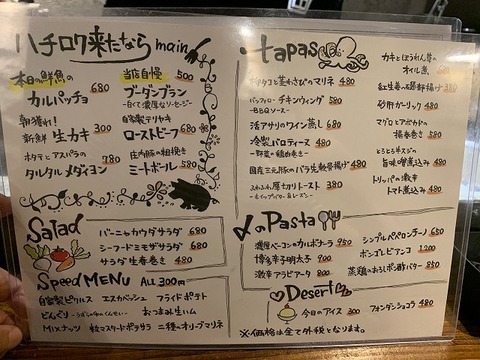 ハチロク来たなら main
本日の鮮魚の
カルパッチョ 680
朝獲れ!
新鮮 生カキ 300
ホタテとアスパラの
タルタルメダイヨン 780
当店自慢 500
ブーダンブラン
-白くて濃厚なソーセージ-
自家製テリヤキ
ローストビーフ 680
庄内豚の粗挽き
ミートボール 580
Salad
バーニャカウダサラダ 680
シーフードミモザサラダ 680
サラダ生春巻き 480
Speed MENU ALL 300円
自家製ピクルス エスカベッシュ フライドポテト
おつまみ生ハム
MIXナッツ 粒マスタードポテサラ 二種のオリーブマリネ
tapas
タコと茎わさびのマリネ 480
バッファローチキンウィング 580
-BBQソース-
活アサリのワイン蒸し 680
冷製バロティーヌ 480
-野菜の鶏肉巻き-
国産三元豚のバラ先軟骨揚げ 480
ふわふわ厚切りトースト 380
カキとほうれん草の
オイル煮 680
紅生姜の磯辺揚げ 380
砂肝ガーリック 480
マグロとアボカドの
揚春巻き 580
とろとろ牛スジの
旨味噌煮込み 480
トリッパの激辛
トマト煮込み 480
〆のPasta
濃厚ベーコンのカルボナーラ 950
博多辛子明太子 900
激辛アラビアータ 800
シンプルペペロンチーノ 650
ボンゴレビアンコ 1200
蒸鶏のおろしポン酢バター 850
Desert
今日のアイス 300
フォンダンショコラ 480
※価格は全て外税となります。